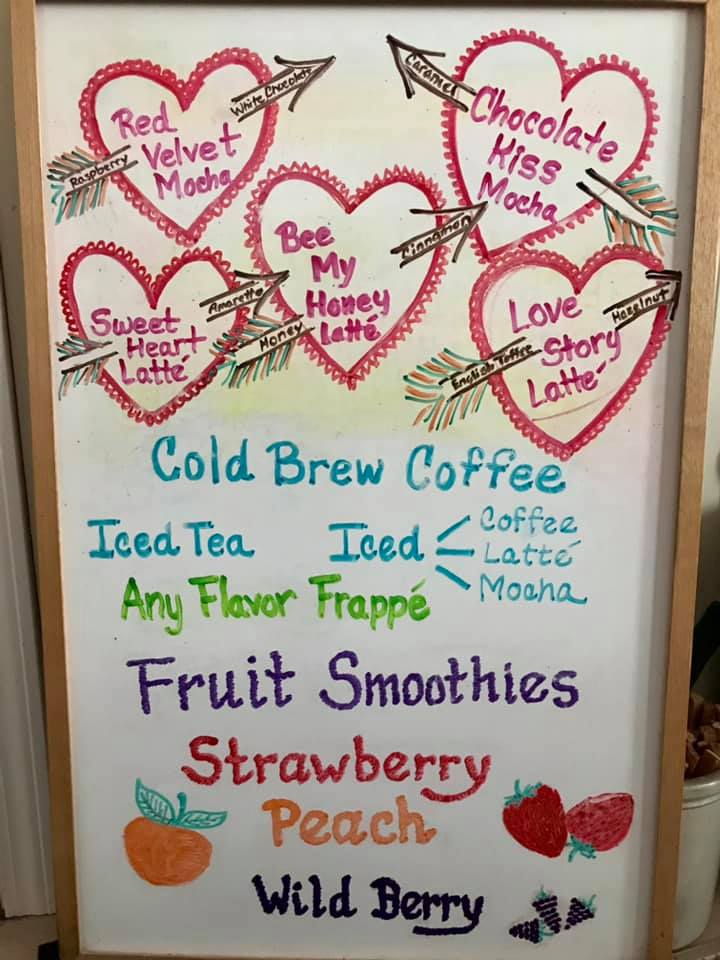 White Chocolate
Red
Velvet
Mocha
Raspberry
Caramel
Chocolate
Kiss
Mocha
Cinnamon
Bee
My
Honey
Latté
Honey
Amaretto
Sweet
Heart
Latté
Hazelnut
Love
Story
Latté
English Toffee
Cold Brew Coffee
Iced Tea
Iced
Coffee
Latté
Mocha
Any Flavor Frappé
Fruit Smoothies
Strawberry
Peach
Wild Berry